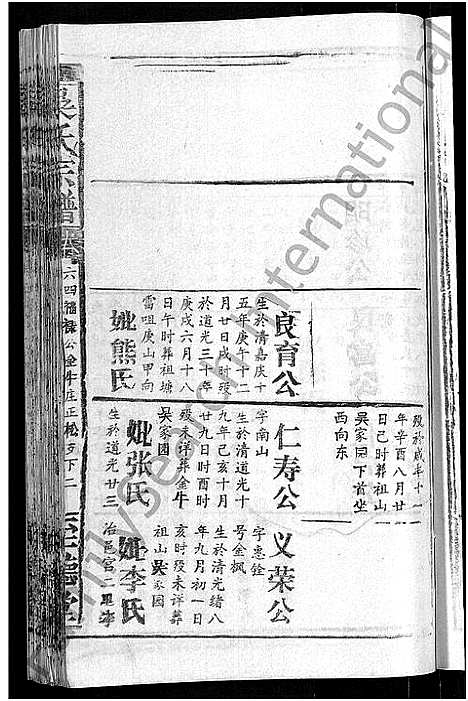 良育公
生於清嘉庆十
五年庚午十二
月廿日戌时殁
於道光三十年
庚戌六月十八
日午时葬祖塘
雷咀庚山甲向
妣熊氏
殁於咸丰十一
年辛酉八月廿
日巳时葬祖山
吴家园下首坐
西向东
仁寿公
字南山
生於清道光十
九年己亥十月
廿九日时酉时
殁未详葬金牛
吴家园
妣张氏
生於道光廿三
义荣公
字惠铨
号金枫
生於清光绪八
年九月初一日
亥时殁未详葬
祖山吴家园
妣李氏
治邑宫二里李
吴氏宗譜
六四福禄公金牛庄正松歹下二
Hillyseng International